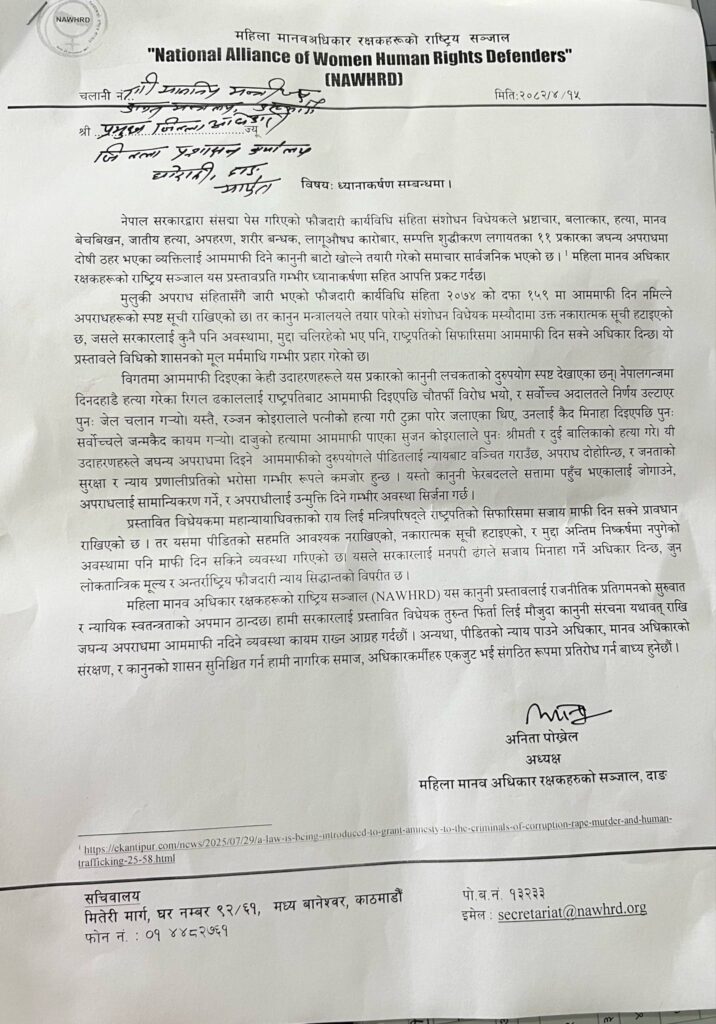 NAWHRD
महिला मानवअधिकार रक्षकहरूको राष्ट्रिय सञ्जाल
"National Alliance of Women Human Rights Defenders"
(NAWHRD)
चलानी नं
मिति:२०८२/४/१५
श्री प्रमुख जिल्ला अधिकारी ज्यू
जिल्ला प्रशासन कार्यालय
घोराही, दाङ
मार्फत
विषय: ध्यानाकर्षण सम्बन्धमा ।
नेपाल सरकारद्वारा संसद्मा पेस गरिएको फौजदारी कार्यविधि संहिता संशोधन विधेयकले भ्रष्टाचार, बलात्कार, हत्या, मानव
बेचबिखन, जातीय हत्या, अपहरण, शरीर बन्धक, लागूऔषध कारोबार, सम्पत्ति शुद्धीकरण लगायतका ११ प्रकारका जघन्य अपराधमा
दोषी ठहर भएका व्यक्तिलाई आममाफी दिने कानुनी बाटो खोल्ने तयारी गरेको समाचार सार्वजनिक भएको छ । ¹ महिला मानव अधिकार
रक्षकहरूको राष्ट्रिय सञ्जाल यस प्रस्तावप्रति गम्भीर ध्यानाकर्षण सहित आपत्ति प्रकट गर्दछ।
मुलुकी अपराध संहितासँगै जारी भएको फौजदारी कार्यविधि संहिता २०७४ को दफा १५९ मा आममाफी दिन नमिल्ने
अपराधहरूको स्पष्ट सूची राखिएको छ। तर कानुन मन्त्रालयले तयार पारेको संशोधन विधेयक मस्यौदामा उक्त नकारात्मक सूची हटाइएको
छ, जसले सरकारलाई कुनै पनि अवस्थामा, मुद्दा चलिरहेको भए पनि, राष्ट्रपतिको सिफारिसमा आममाफी दिन सक्ने अधिकार दिन्छ। यो
प्रस्तावले विधिको शासनको मूल मर्ममाथि गम्भीर प्रहार गरेको छ।
विगतमा आममाफी दिइएका केही उदाहरणहरूले यस प्रकारको कानुनी लचकताको दुरुपयोग स्पष्ट देखाएका छन्। नेपालगन्जमा
दिनदहाडै हत्या गरेका रिगल ढकाललाई राष्ट्रपतिबाट आममाफी दिइएपछि चौतर्फी विरोध भयो, र सर्वोच्च अदालतले निर्णय उल्टाएर
पुनः जेल चलान गर्‍यो। यस्तै, रञ्जन कोइरालाले पत्नीको हत्या गरी टुक्रा पारेर जलाएका थिए, उनलाई कैद मिनाहा दिइएपछि पुनः
सर्वोच्चले जन्मकैद कायम गर्‍यो। दाजुको हत्यामा आममाफी पाएका सुजन कोइरालाले पुनः श्रीमती र दुई बालिकाको हत्या गरे। यी
उदाहरणहरूले जघन्य अपराधमा दिइने आममाफीको दुरुपयोगले पीडितलाई न्यायबाट वञ्चित गराउँछ, अपराध दोहोरिन्छ, र जनताको
सुरक्षा र न्याय प्रणालीप्रतिको भरोसा गम्भीर रूपले कमजोर हुन्छ । यस्तो कानुनी फेरबदलले सत्तामा पहुँच भएकालाई जोगाउने,
अपराधलाई सामान्यिकरण गर्ने, र अपराधीलाई उन्मुक्ति दिने गम्भीर अवस्था सिर्जना गर्छ ।
प्रस्तावित विधेयकमा महान्यायाधिवक्ताको राय लिई मन्त्रिपरिषद्ले राष्ट्रपतिको सिफारिसमा सजाय माफी दिन सक्ने प्रावधान
राखिएको छ । तर यसमा पीडितको सहमति आवश्यक नराखीएको, नकारात्मक सूची हटाइएको, र मुद्दा अन्तिम निष्कर्षमा नपुगेको
अवस्थामा पनि माफी दिन सकिने व्यवस्था गरिएको छ। यसले सरकारलाई मनपरी ढंगले सजाय मिनाहा गर्ने अधिकार दिन्छ, जुन
लोकतान्त्रिक मूल्य र अन्तर्राष्ट्रिय फौजदारी न्याय सिद्धान्तको विपरीत छ ।
महिला मानव अधिकार रक्षकहरूको राष्ट्रिय सञ्जाल (NAWHRD) यस कानुनी प्रस्तावलाई राजनीतिक प्रतिगमनको सुरुवात
र न्यायिक स्वतन्त्रताको अपमान ठान्दछ। हामी सरकारलाई प्रस्तावित विधेयक तुरुन्त फिर्ता लिई मौजुदा कानुनी संरचना यथावत् राखि
जघन्य अपराधमा आममाफी नदिने व्यवस्था कायम राख्न आग्रह गर्दछौं । अन्यथा, पीडितको न्याय पाउने अधिकार, मानव अधिकारको
संरक्षण, र कानुनको शासन सुनिश्चित गर्न हामी नागरिक समाज, अधिकारकर्मीहरु एकजुट भई संगठित रूपमा प्रतिरोध गर्न बाध्य हुनेछौं ।
अनिता पोख्रेल
अध्यक्ष
महिला मानव अधिकार रक्षकहरुको सञ्जाल, दाङ
¹ https://ekantipur.com/news/2025/07/29/a-law-is-being-introduced-to-grant-amnesty-to-the-criminals-of-corruption-rape-murder-and-human-
trafficking-25-58.html
सचिवालय
मितेरी मार्ग, घर नम्बर ९२/६१, मध्य बानेश्वर, काठमाडौं
फोन नं. : ०१ ४४८२७६१
पो.ब.नं. १३२३३
इमेल : secretariat@nawhrd.org